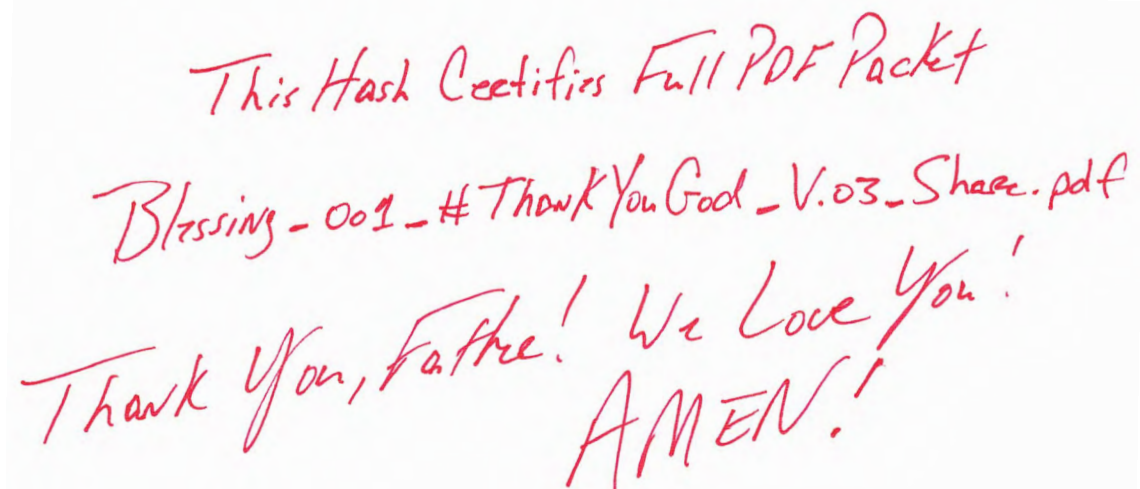 This Hash Certifies Full PDF Packet
Blessing_001_#ThankYouGod_V.03_Share.pdf
Thank You, Father! We Love You!
AMEN!